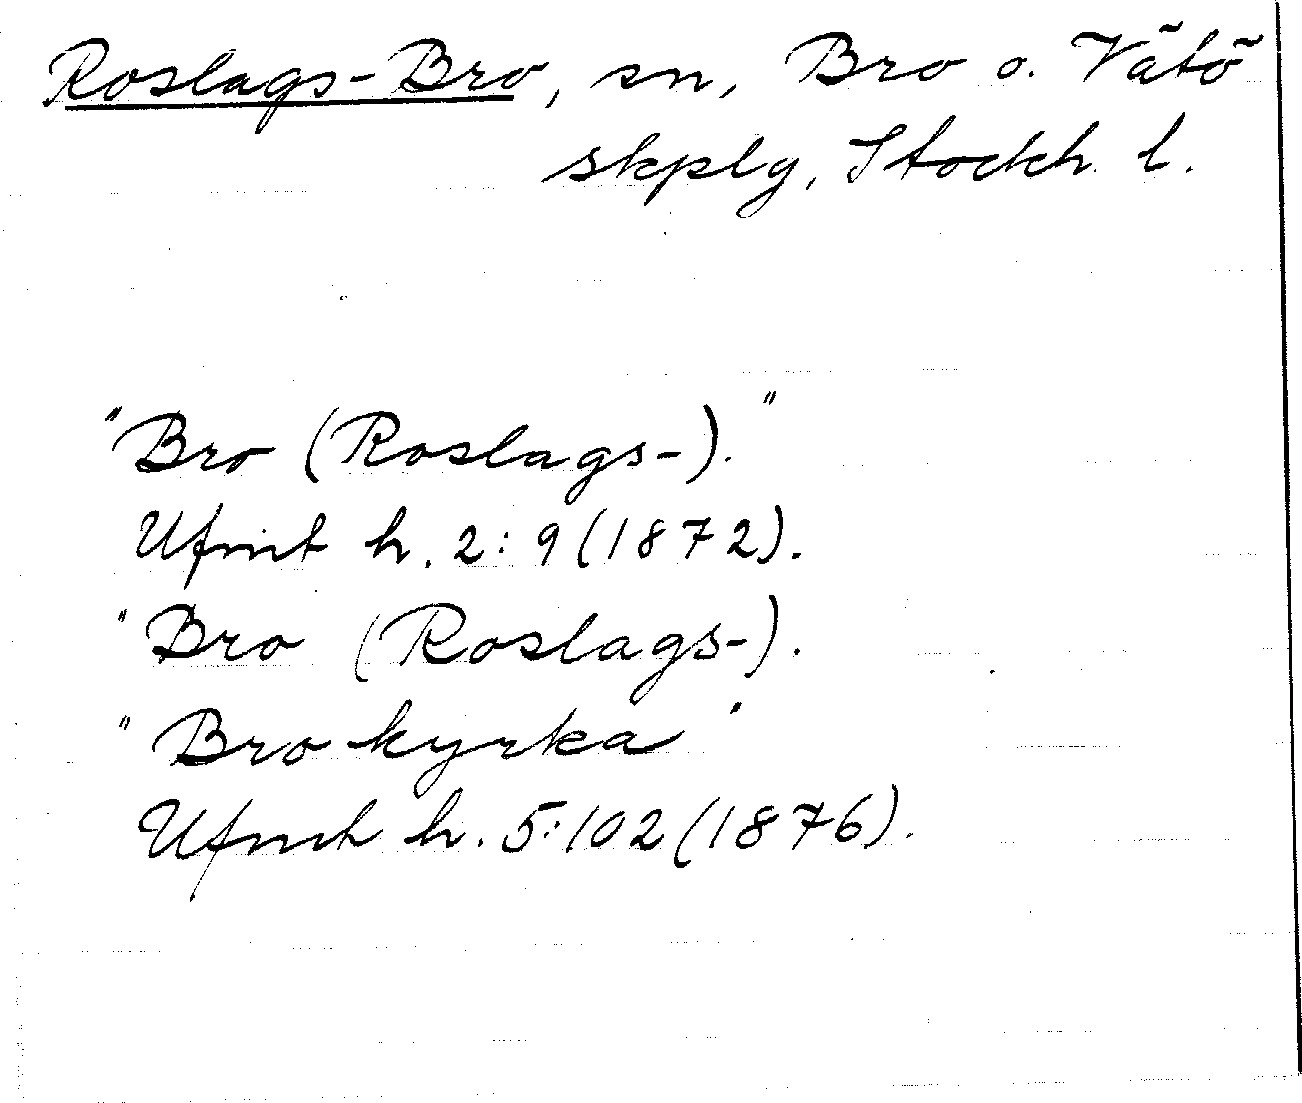 Roslags-Bro, sn, Bro o. Vätö
skplg, Stockh. l.
"Bro (Roslags-)."
Ufmt h. 2:9 (1872).
"Bro (Roslags-).
"Bro kyrka"
Ufmt h. 5:102 (1876).